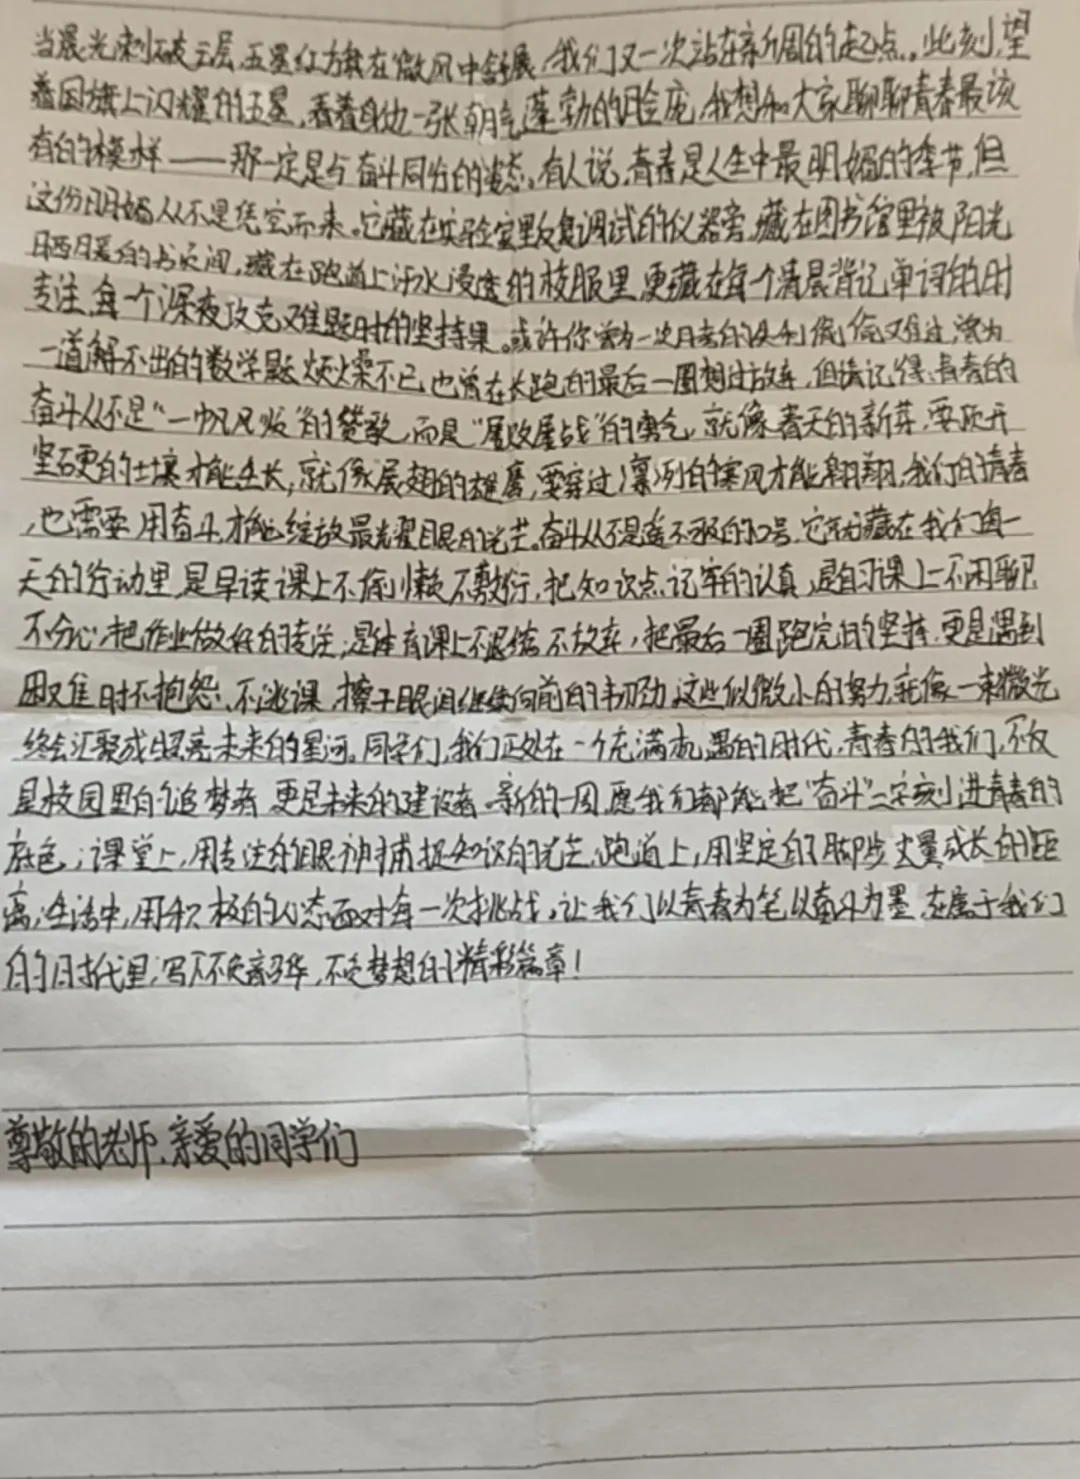 当晨光刺破云层,五星红旗在微风中舒展,我们又一次站在新周的起点。此刻,望
着国旗上闪耀的五星,看着身边一张朝气蓬勃的脸庞,我想和大家聊聊青春最该
有的模样——那一定是与奋斗同行的姿态。有人说,青春是人生中最明媚的季节,但
这份明媚从不是凭空而来。它藏在实验室里反复调试的仪器旁,藏在图书馆里被阳光
晒暖的书页间,藏在跑道上汗水浸透的校服里,更藏在每个清晨背记单词的时
专注,每个深夜攻克难题时的坚持果。或许你曾为一次月考的失利偷偷难过,曾为
一道解不出的数学题烦燥不已,也曾在长跑的最后一圈想过放弃,但请记得,青春的
奋斗从不是“一帆风顺”的赞歌,而是“屡败屡战”的勇气,就像春天的新芽,要顶开
坚硬的土壤才能生长,就像展翅的雄鹰,要穿过凛冽的寒风才能翱翔,我们的青春
,也需要用奋斗,才能绽放最耀眼的光芒。奋斗从不是遥不可及的口号,它就藏在我们每一
天的行动里,是早读课上不偷懒不敷衍,把知识点记牢的认真,是自习课上不闲聊
不分心,把作业做好的专注;是体育课上不退缩不放弃,把最后一圈跑完的坚持,更是遇到
困难时不抱怨、不逃课,擦干眼泪继续向前的韧劲,这些似微小的努力,就像一束微光
终会汇聚成照亮未来的星河。同学们,我们正处在一个充满机遇的时代,青春的我们,不仅
是校园里的追梦者,更是未来的建设者,新的一周,愿我们都能把“奋斗”二字刻进青春的
底色;课堂上,用专注的眼神捕捉知识的光芒,跑道上,用坚定的脚步丈量成长的距
离,生活中,用积极的心态面对每一次挑战。让我们以青春为笔以奋斗为墨,在属于我们
的时代里,写下不负韶华,不负梦想的精彩篇章!
尊敬的老师,亲爱的同学们